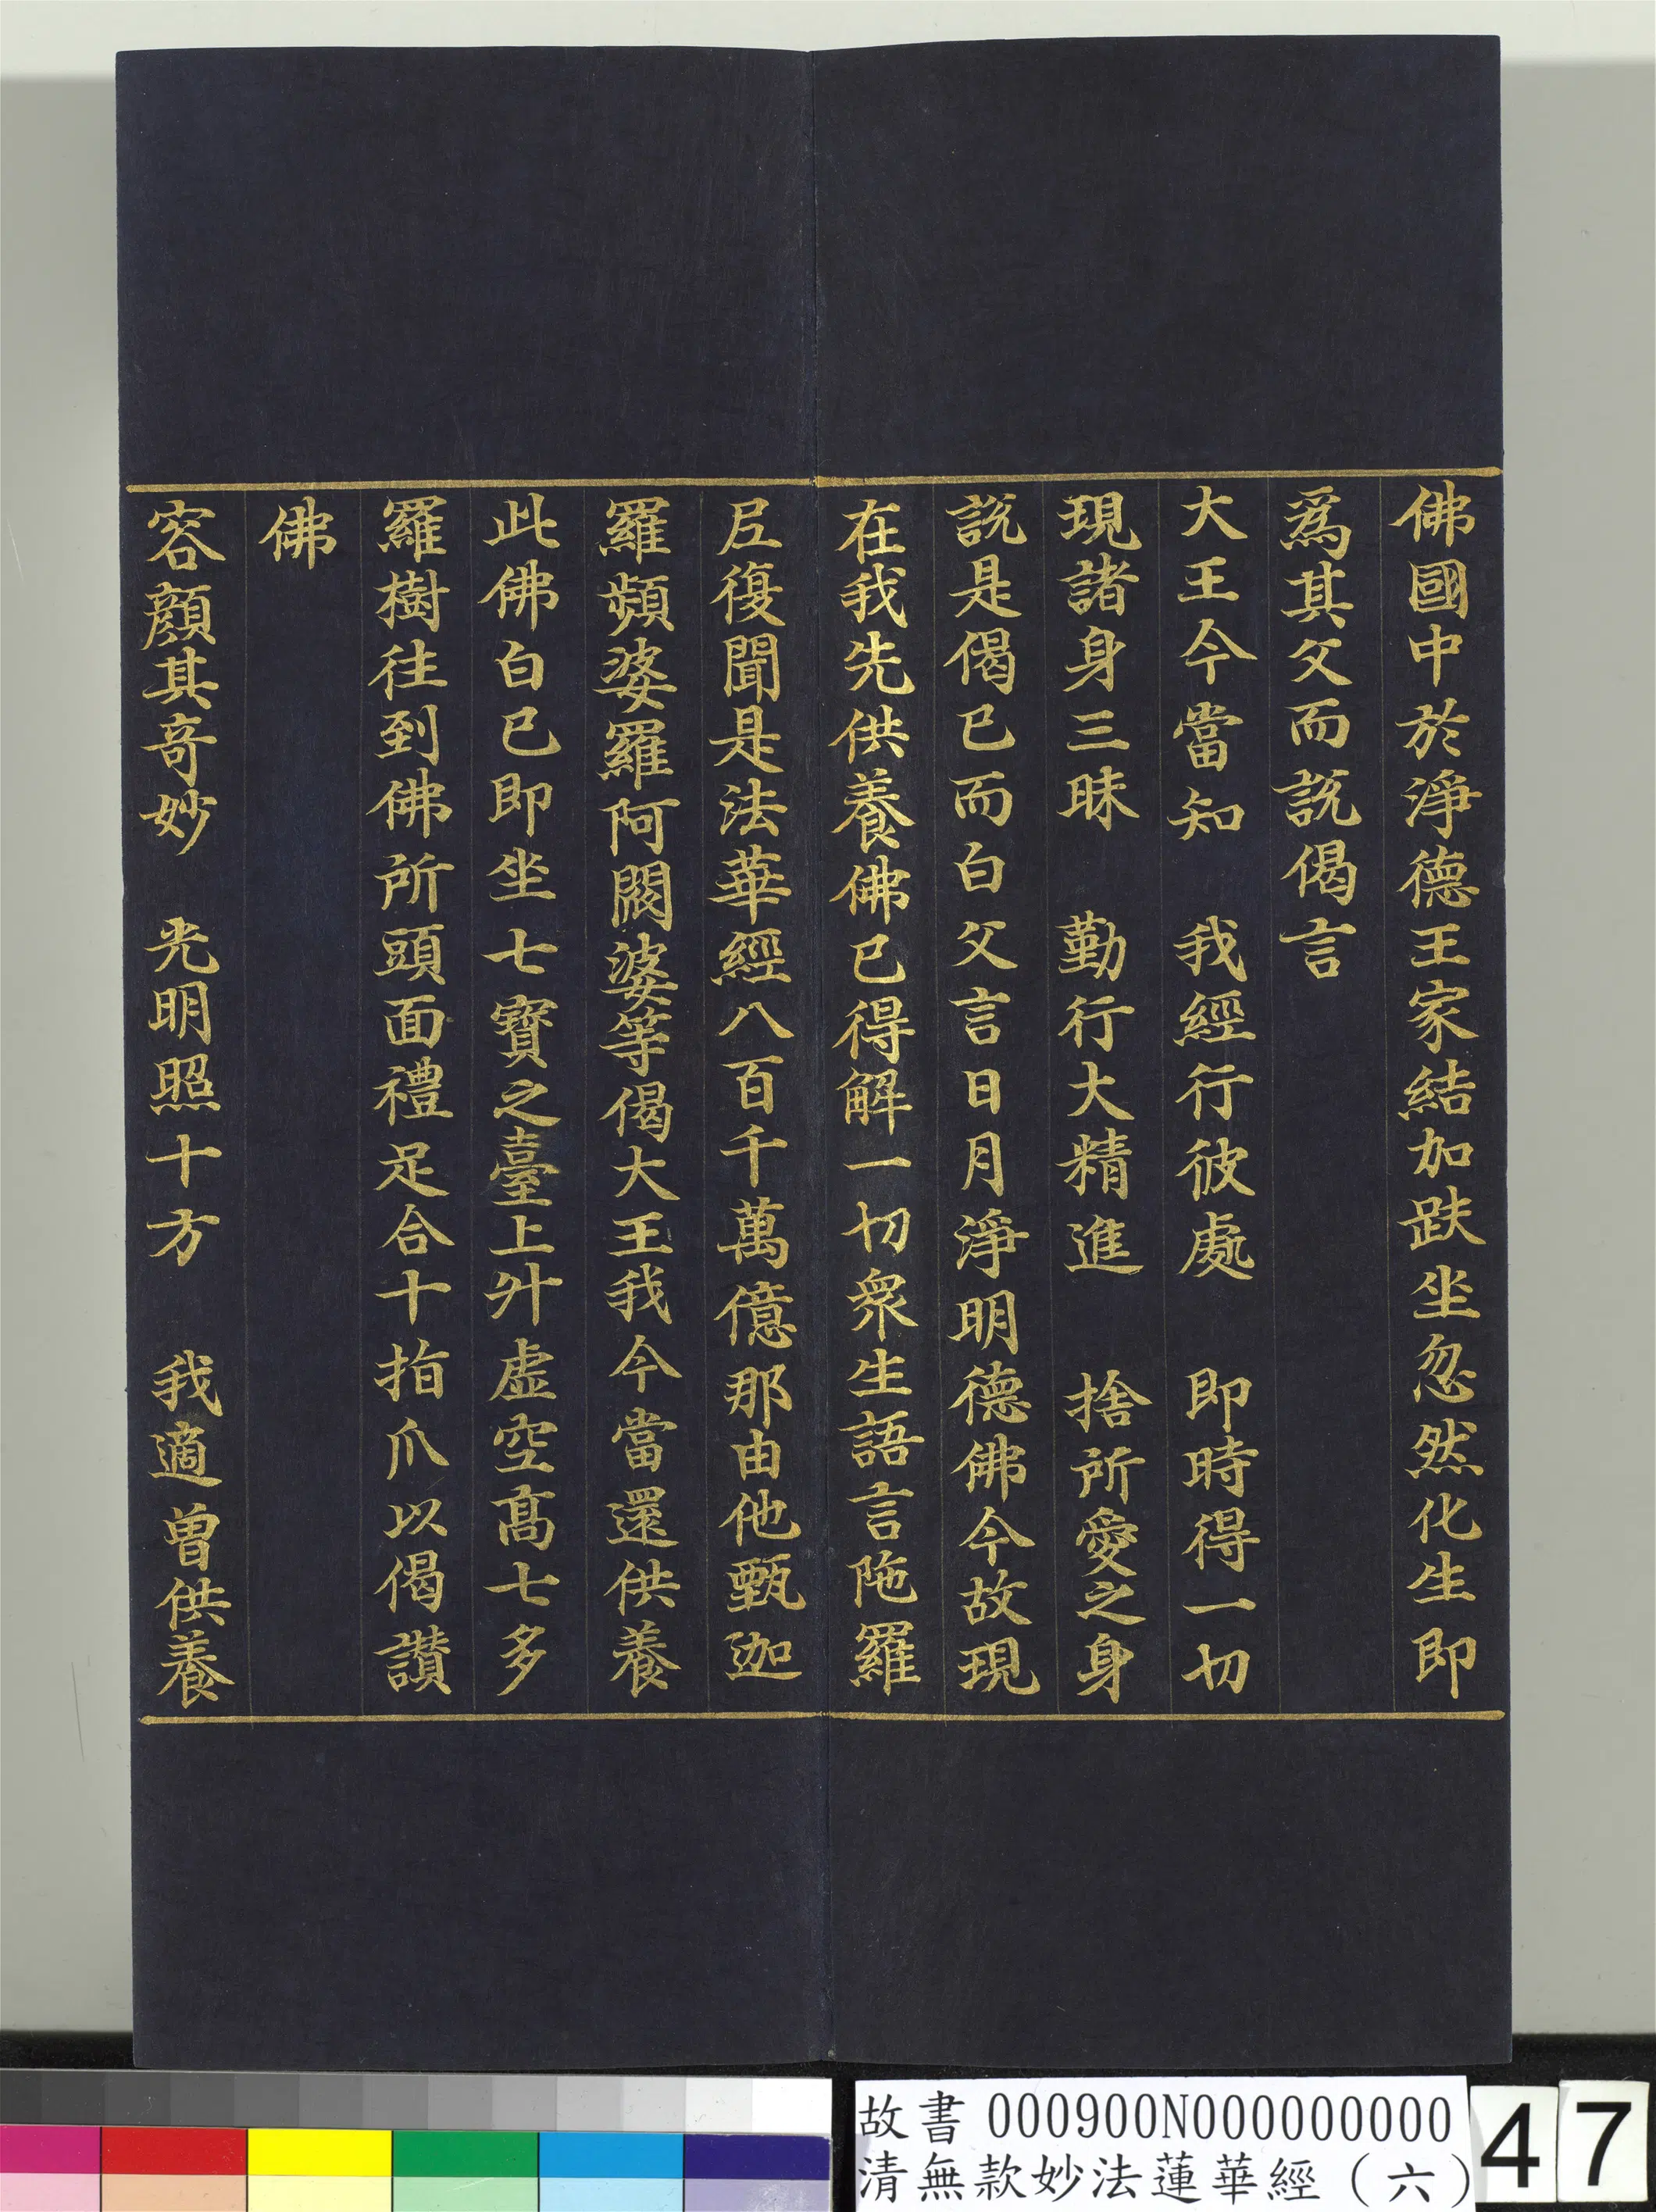 佛國中於淨德王家結加趺坐忽然化生即
爲其父而說偈言
大王今當知　我經行彼處　即時得一切
現諸身三昧　勤行大精進　捨所愛之身
說是偈已而白父言日月淨明德佛今故現
在我先供養佛已得解一切衆生語言陁羅
尼復聞是法華經八百千萬億那由他甄迦
羅頻婆羅阿閦婆等偈大王我今當還供養
此佛白已即坐七寶之臺上升虛空高七多
羅樹往到佛所頭面禮足合十指爪以偈讚
佛
容顏其奇妙　光明照十方　我適曾供養
故書 000900N000000000
清無款妙法蓮華經（六）
47